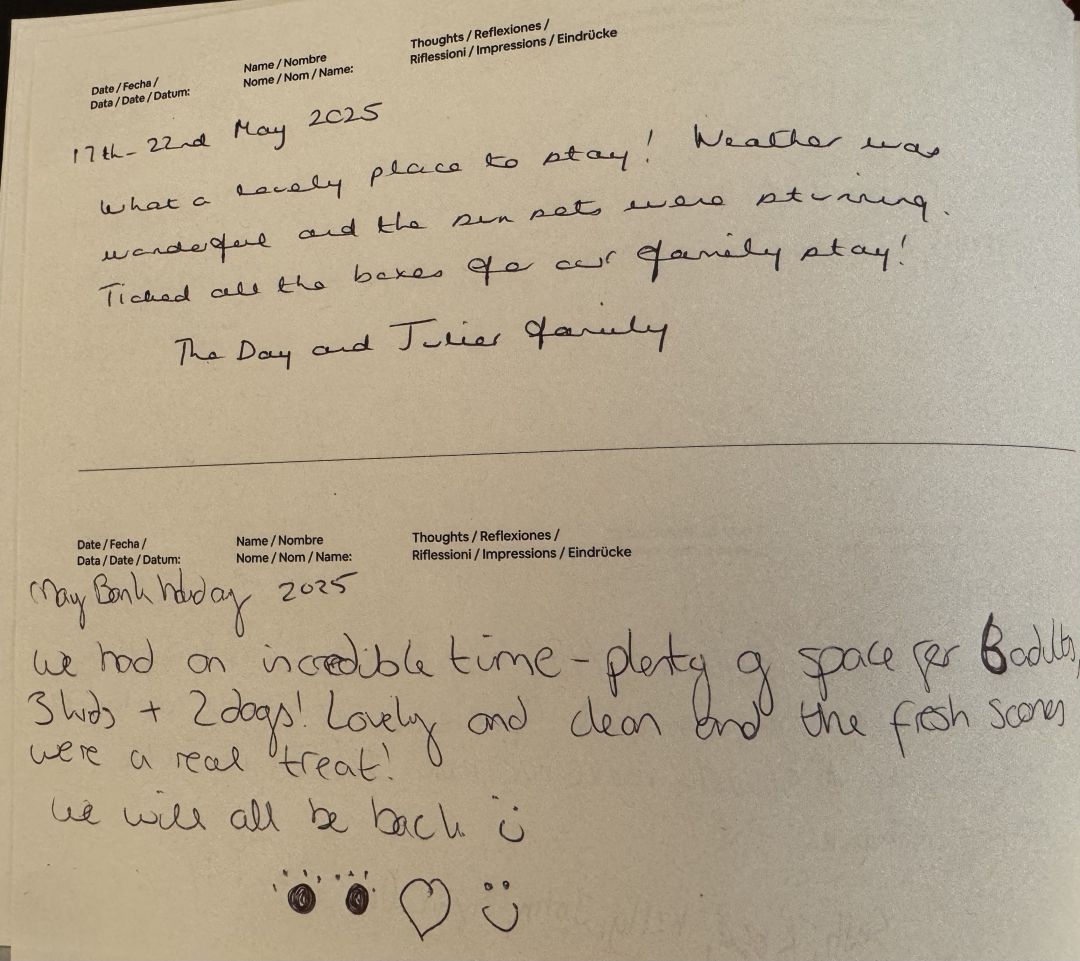 Date / Fecha /
Data / Date / Datum:
Name / Nombre
Nome / Nom / Name:
Thoughts / Reflexiones /
Riflessioni / Impressions / Eindrücke
17th - 22nd May 2025
What a lovely place to stay! Weather was
wonderful and the sun sets were stunning.
Ticked all the boxes for our family stay!
The Day and Julier family
Date / Fecha /
Data / Date / Datum:
Name / Nombre
Nome / Nom / Name:
Thoughts / Reflexiones /
Riflessioni / Impressions / Eindrücke
May Bank holiday 2025
We had an incredible time - plenty of space for 6 adults,
3 kids + 2 dogs! Lovely and clean and the fresh scones
were a real treat!
We will all be back :)